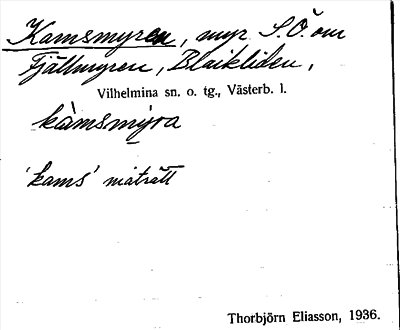 Kamsmyren, myr S.Ö. om
Fjällmyren, Blaikliden,
Vilhelmina sn. o. tg., Västerb. l.
kàmsmyra
'kams' maträtt
Thorbjörn Eliasson, 1936.